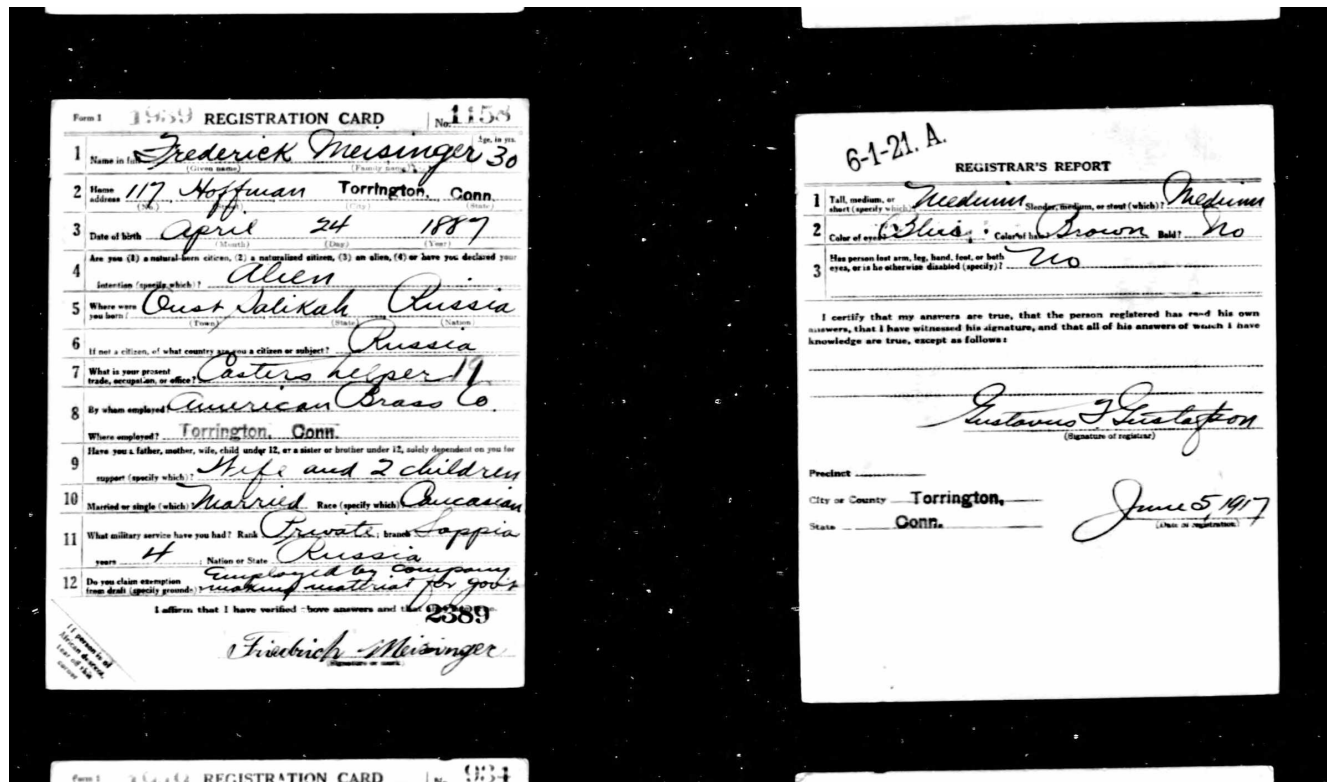 Form 1 1939 REGISTRATION CARD No. 1158
1 Name in full Frederick Meisinger Age, in yrs. 30
(Given name) (Family name)
2 Home address 117 Hoffman Torrington, Conn.
(No.) (Street) (City) (State)
3 Date of birth April 24 1887
(Month) (Day) (Year)
4 Are you (1) a natural-born citizen, (2) a naturalized citizen, (3) an alien, (4) or have you declared your
intention (specify which)? Alien
5 Where were you born? Oust Salikah Russia
(Town) (State) (Nation)
6 If not a citizen, of what country are you a citizen or subject? Russia
7 What is your present trade, occupation, or office? Casters helper 19
8 By whom employed? American Brass Co.
Where employed? Torrington, Conn.
9 Have you a father, mother, wife, child under 12, or a sister or brother under 12, solely dependent on you for
support (specify which)? Wife and 2 children
10 Married or single (which)? Married Race (specify which)? Caucasian
11 What military service have you had? Rank Private; branch Sappia
years 4; Nation or State Russia
12 Do you claim exemption from draft (specify grounds)? Employed by company making material for gov't
I affirm that I have verified above answers and that
2389
Friedrich Meisinger
(Signature or mark)
If person is of
African descent,
tear off this
corner
6-1-21. A.
REGISTRAR'S REPORT
1 Tall, medium, or short (specify which)? Medium Slender, medium, or stout (which)? Medium
2 Color of eyes? Blue Color of hair? Brown Bald? No
3 Has person lost arm, leg, hand, foot, or both eyes, or is he otherwise disabled (specify)? No
I certify that my answers are true, that the person registered has read his own
answers, that I have witnessed his signature, and that all of his answers of which I have
knowledge are true, except as follows:
Gustavus F Gustafson
(Signature of registrar)
Precinct
City or County Torrington,
State Conn.
June 5, 1917
(Date of registration)
Form 1 REGISTRATION CARD No. 934